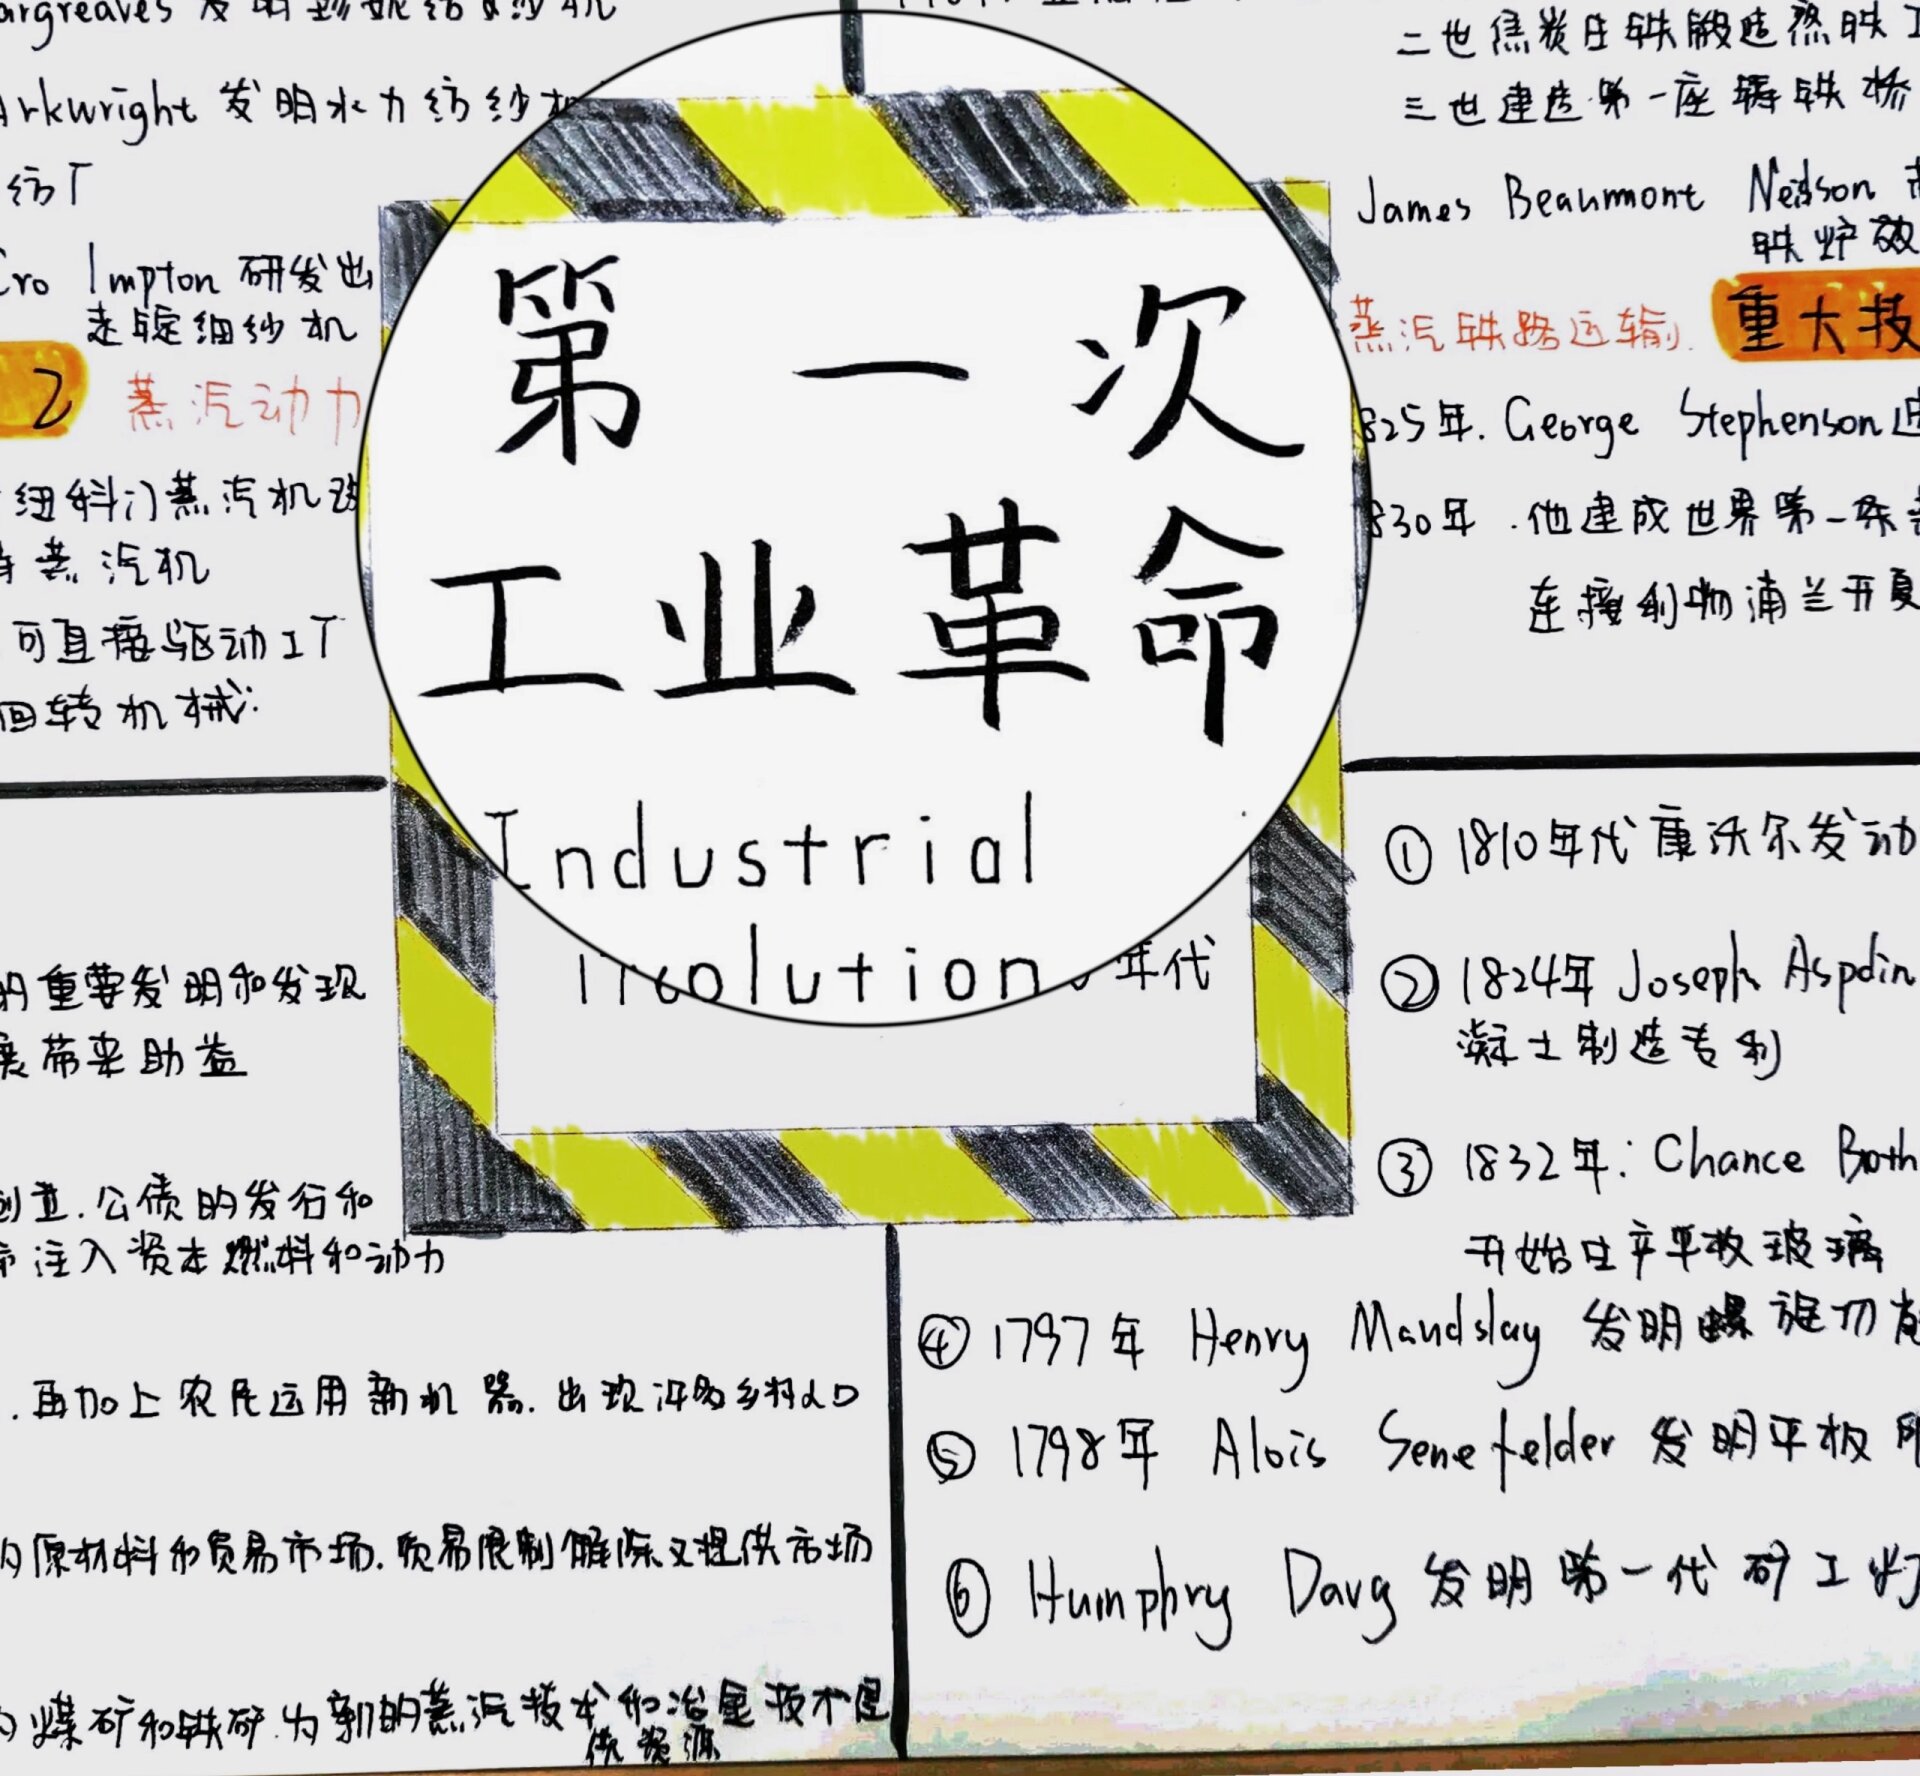 发明珍妮纺纱机
Arkwright 发明水力纺纱
纺厂
Impton 研发出
走锭细纱机
2 蒸汽动力
纽科门蒸汽机
蒸汽机
可直接驱动工厂
回转机械
第一次
工业革命
Industrial
olution
年代
二世焦炭生铁锻造熟铁
三世建造第一座铸铁桥
James Beaumont Neilson
铁炉效
蒸汽铁路运输
重大技
825年. George Stephenson
830年.他建成世界第一条
连接利物浦兰开夏
的重要发明和发现
展带来助益
创立.公债的发行和
注入资本燃料和动力
.再加上农民运用新机器.出现许多乡村人口
原材料和贸易市场.贸易限制解除又提供市场
煤矿和铁矿.为新的蒸汽技术和冶金技术提
供资源
① 1810年代康沃尔发动
② 1824年 Joseph Aspdin
凝土制造专利
③ 1832年: Chance Both
开始生产平板玻璃
④ 1797年 Henry Maudslay 发明螺旋切
⑤ 1798年 Alois Senefelder 发明平板
⑥ Humphry Davy 发明第一代矿工灯